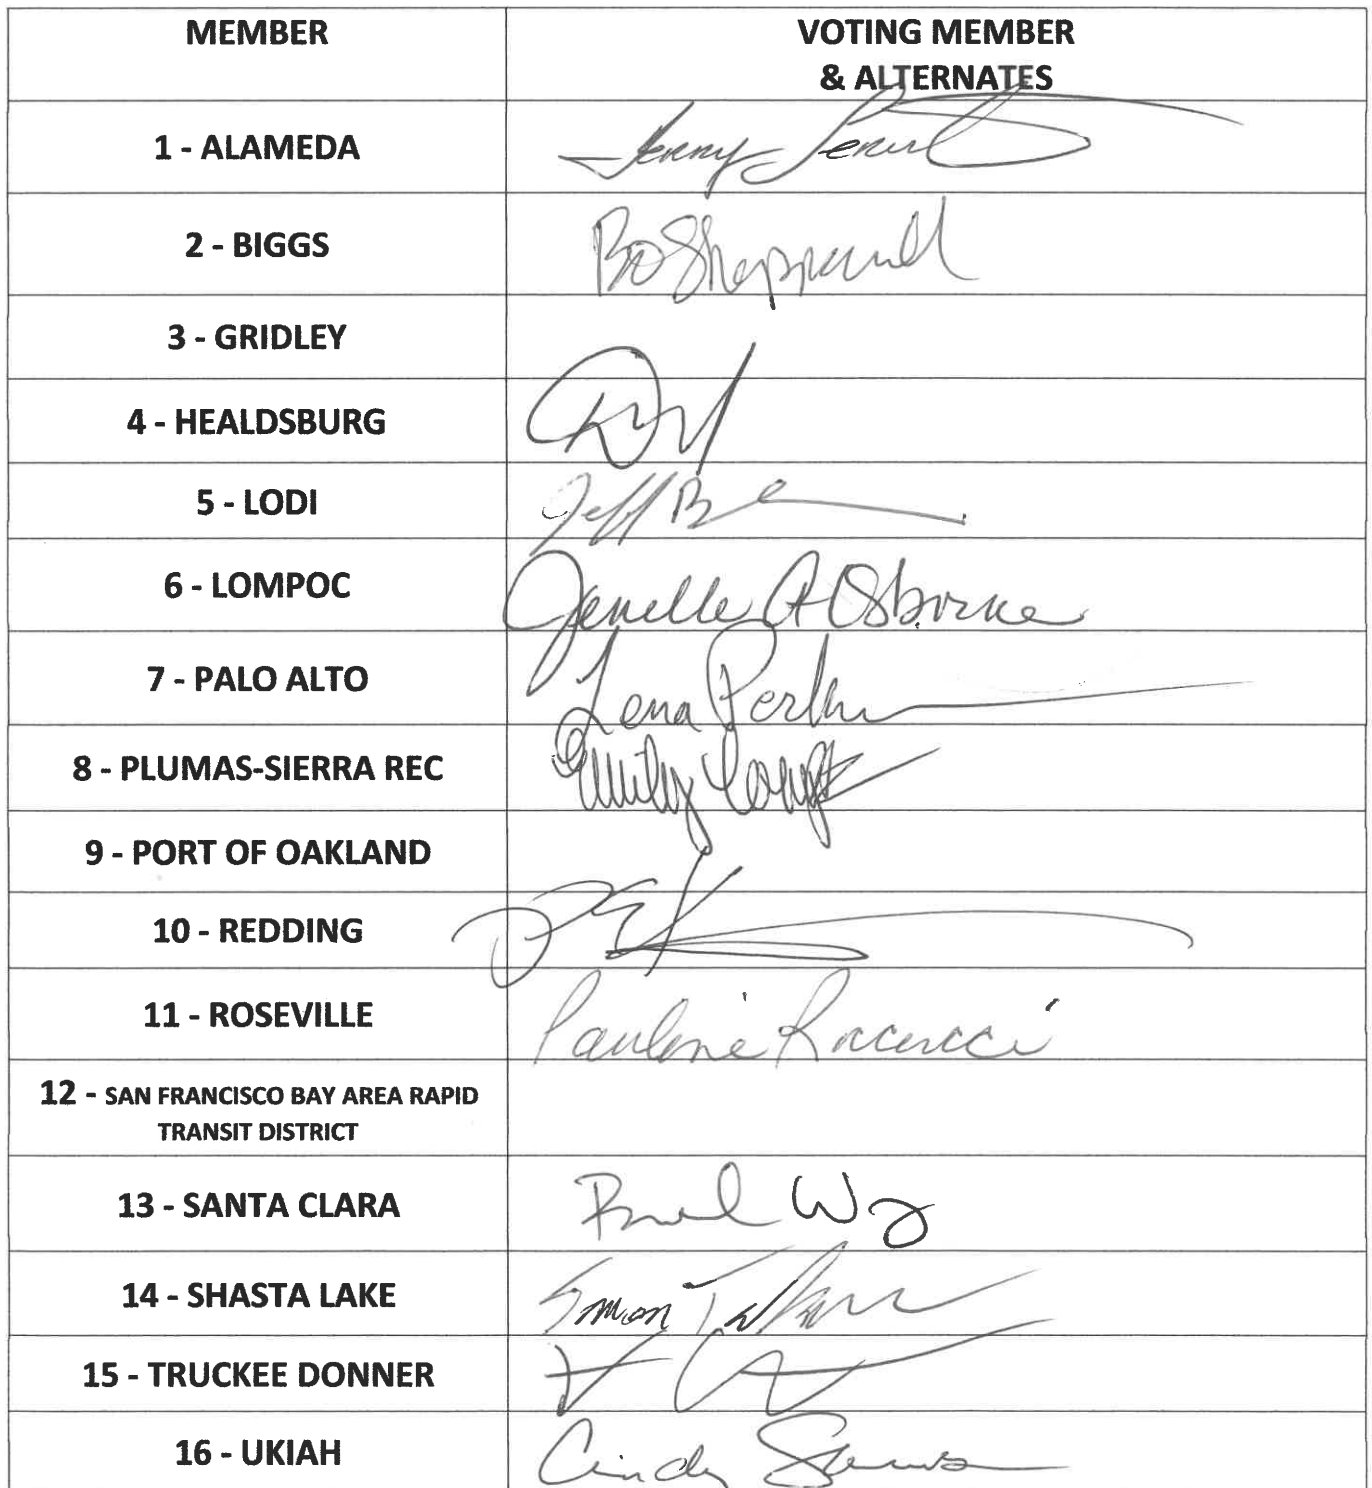 MEMBER
VOTING MEMBER
& ALTERNATES
1 - ALAMEDA
2 - BIGGS
Bo Sheppard
3 - GRIDLEY
4 - HEALDSBURG
5 - LODI
Jeff
6 - LOMPOC
Jenelle A Osborne
7 - PALO ALTO
Lena Perkins
8 - PLUMAS-SIERRA REC
Emily
9 - PORT OF OAKLAND
10 - REDDING
11 - ROSEVILLE
Pauline Roccucci
12 - SAN FRANCISCO BAY AREA RAPID
TRANSIT DISTRICT
13 - SANTA CLARA
14 - SHASTA LAKE
15 - TRUCKEE DONNER
16 - UKIAH
Cindy